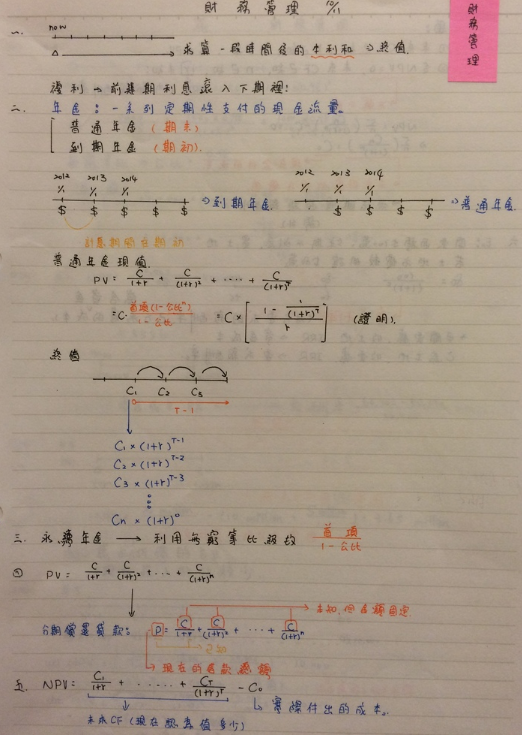 財務管理 10/11
財務管理
一.
now
求算一段時間後的本利和 ⇒ 終值.
複利 → 前幾期利息滾入下期裡:
二. 年金: 一系列定期性支付的現金流量.
普通年金 (期末)
到期年金 (期初).
2012 2013 2014
1/1 1/1 1/1
$ $ $ $ $
⇒ 到期年金
2012 2013 2014
1/1 1/1 1/1
$ $ $ $
⇒ 普通年金.
計息期間在期初
普通年金現值.
PV = C/(1+r) + C/(1+r)² + ····· + C/(1+r)^T
= C · 首項(1-公比ⁿ)/(1-公比) = C × [(1 - 1/(1+r)^T)/r] (證明).
終值
C₁ C₂ C₃
T-1
C₁ × (1+r)^T-1
C₂ × (1+r)^T-2
C₃ × (1+r)^T-3
Cn × (1+r)⁰
三. 永續年金 → 利用無窮等比級數 首項/(1-公比)
PV = C/(1+r) + C/(1+r)² + ··· + C/(1+r)ⁿ
分期償還貸款: P = C/(1+r) + C/(1+r)² + ··· + C/(1+r)ⁿ
未知,
已知
現在的貸款總額
五. NPV = C₁/(1+r) + ······ + C_T/(1+r)^T - C₀
實際付出的成本.
未來CF (現在認為值多少)